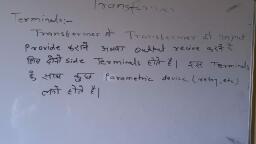 Transformer
Terminals:-
Transformer में Transformer को input
Provide कराने अथवा output recive करने के
लिए दोनों side Terminals होते है। इस Terminals
के साथ कुछ Parametric device (relay, etc)
लगे होते है।